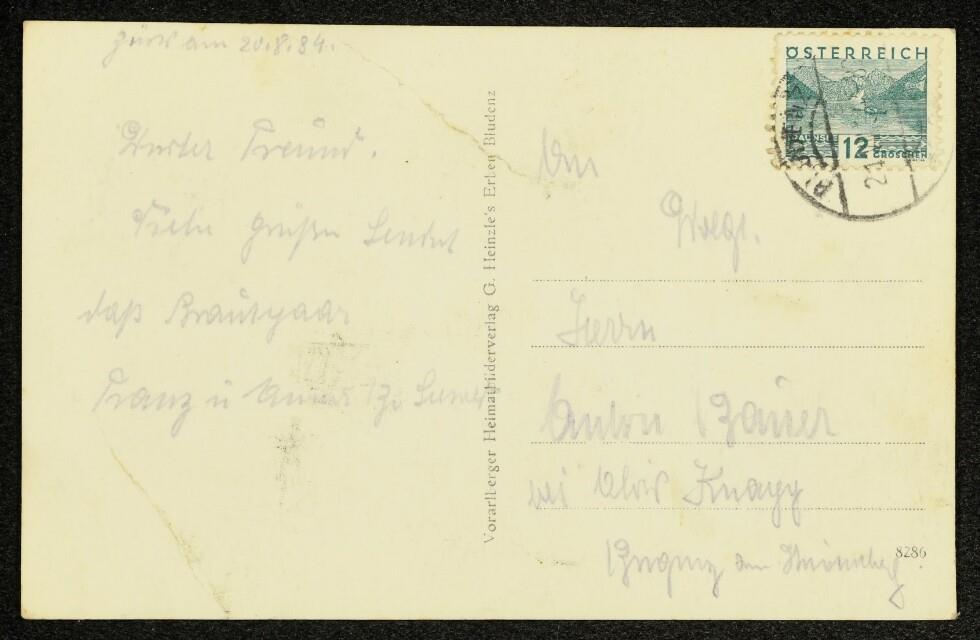 Zürs am 20.8.34.
Werter Freund.
Viele grüße Sendet
daß Brautpaar
Franz u Anna
Vorarlberger Heimatbilderverlag G. Heinzle's Erben Bludenz
ÖSTERREICH
12
GROSCHEN
An
Wlgb.
Herrn
Anton Bauer
bei Alois Knapp
8286
Bregenz am